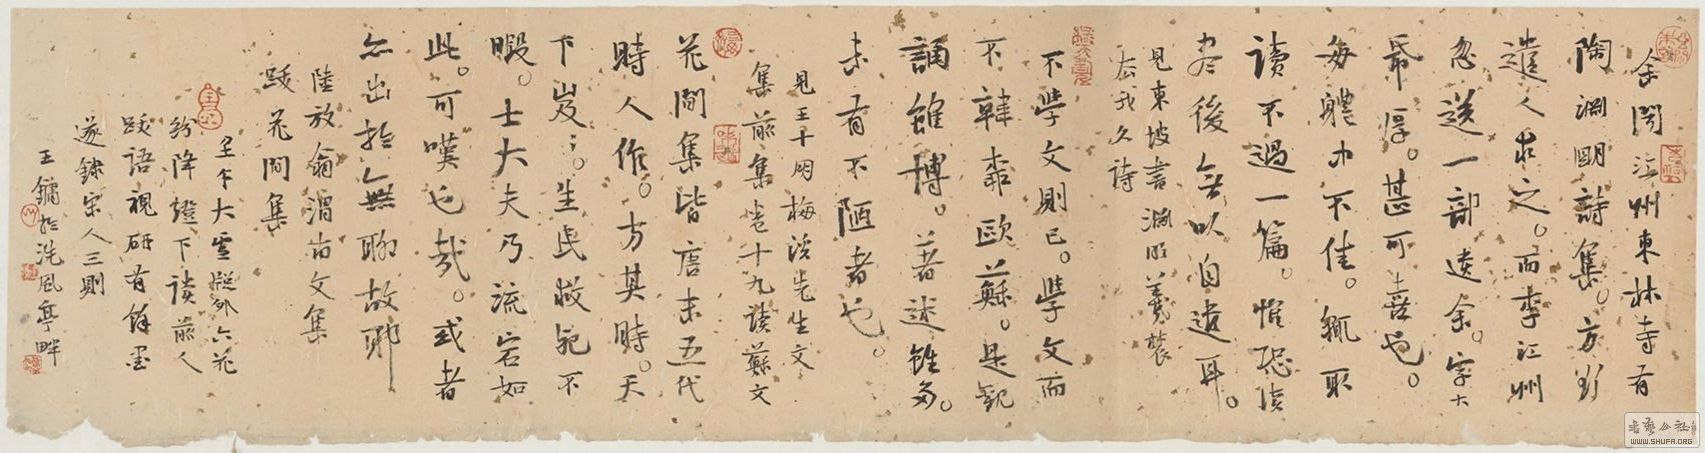 余闻江州东林寺有
陶淵明詩集。方欲
遣人求之。而李江州
忽送一部遗余。字大
纸厚。甚可喜也。
每體中不佳。輒取
读不過一篇。惟恐读
尽後无以自遣耳。
見東坡書淵明羲農
去我久诗
不學文則已。學文而
不韓柳歐蘇。是觀
誦雖博。著述雖多。
未有不陋者也。
見王十朋梅溪先生文
集前集卷十九读蘇文
花間集皆唐末五代
時人作。方其時。天
下岌岌。生民救死不
暇。士大夫乃流宕如
此。可嘆也哉。或者
亦出於無聊故耶
陸放翁渭南文集
跋花間集
大雪牕外六花
纷降燈下读前人
跋語視研有餘墨
遂録宋人三則
王鏞於洗風亭畔
WWW.SHUFA.ORG